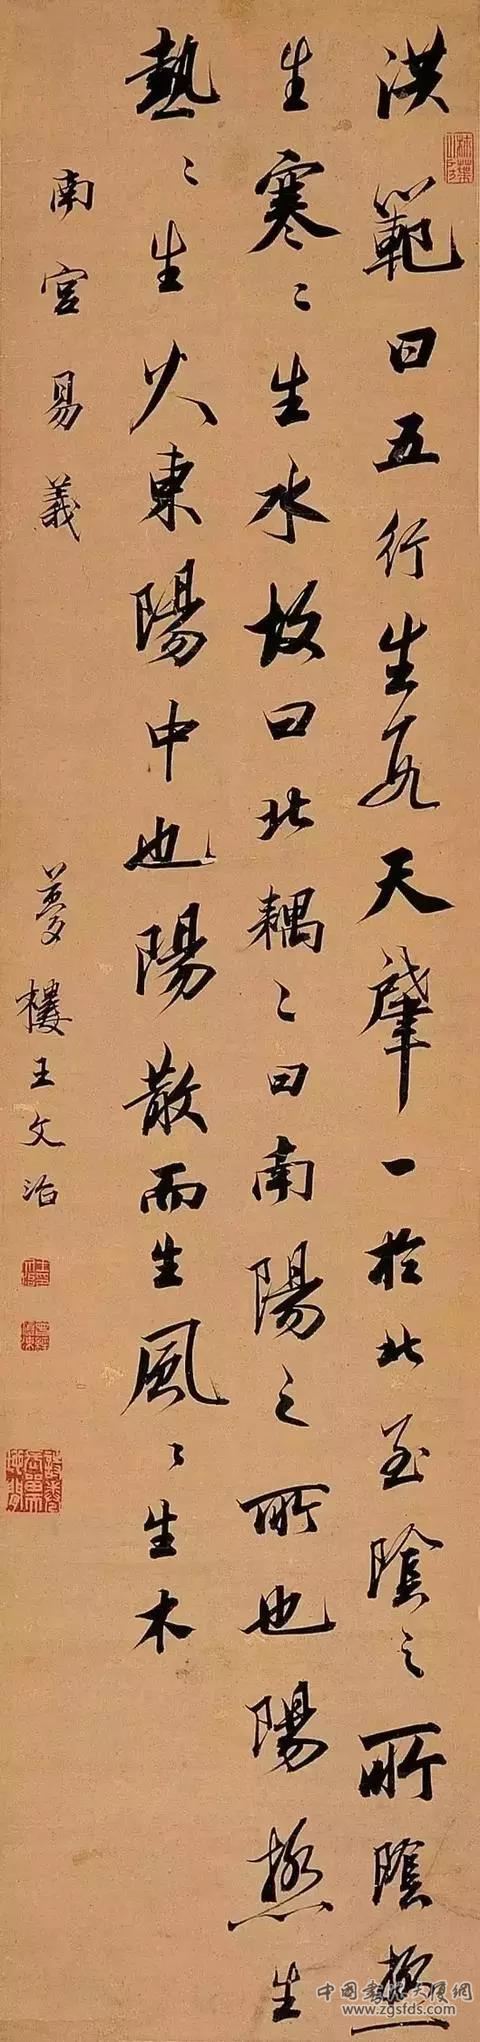 洪範曰五行生數天肇一於北至陰之所陰極
生寒〻生水故曰北耦〻曰南陽之所也陽極生
熱〻生火東陽中也陽散而生風〻生木
南宮易義
夢樓王文治
中國書法大厦網
www.zgsfds.com